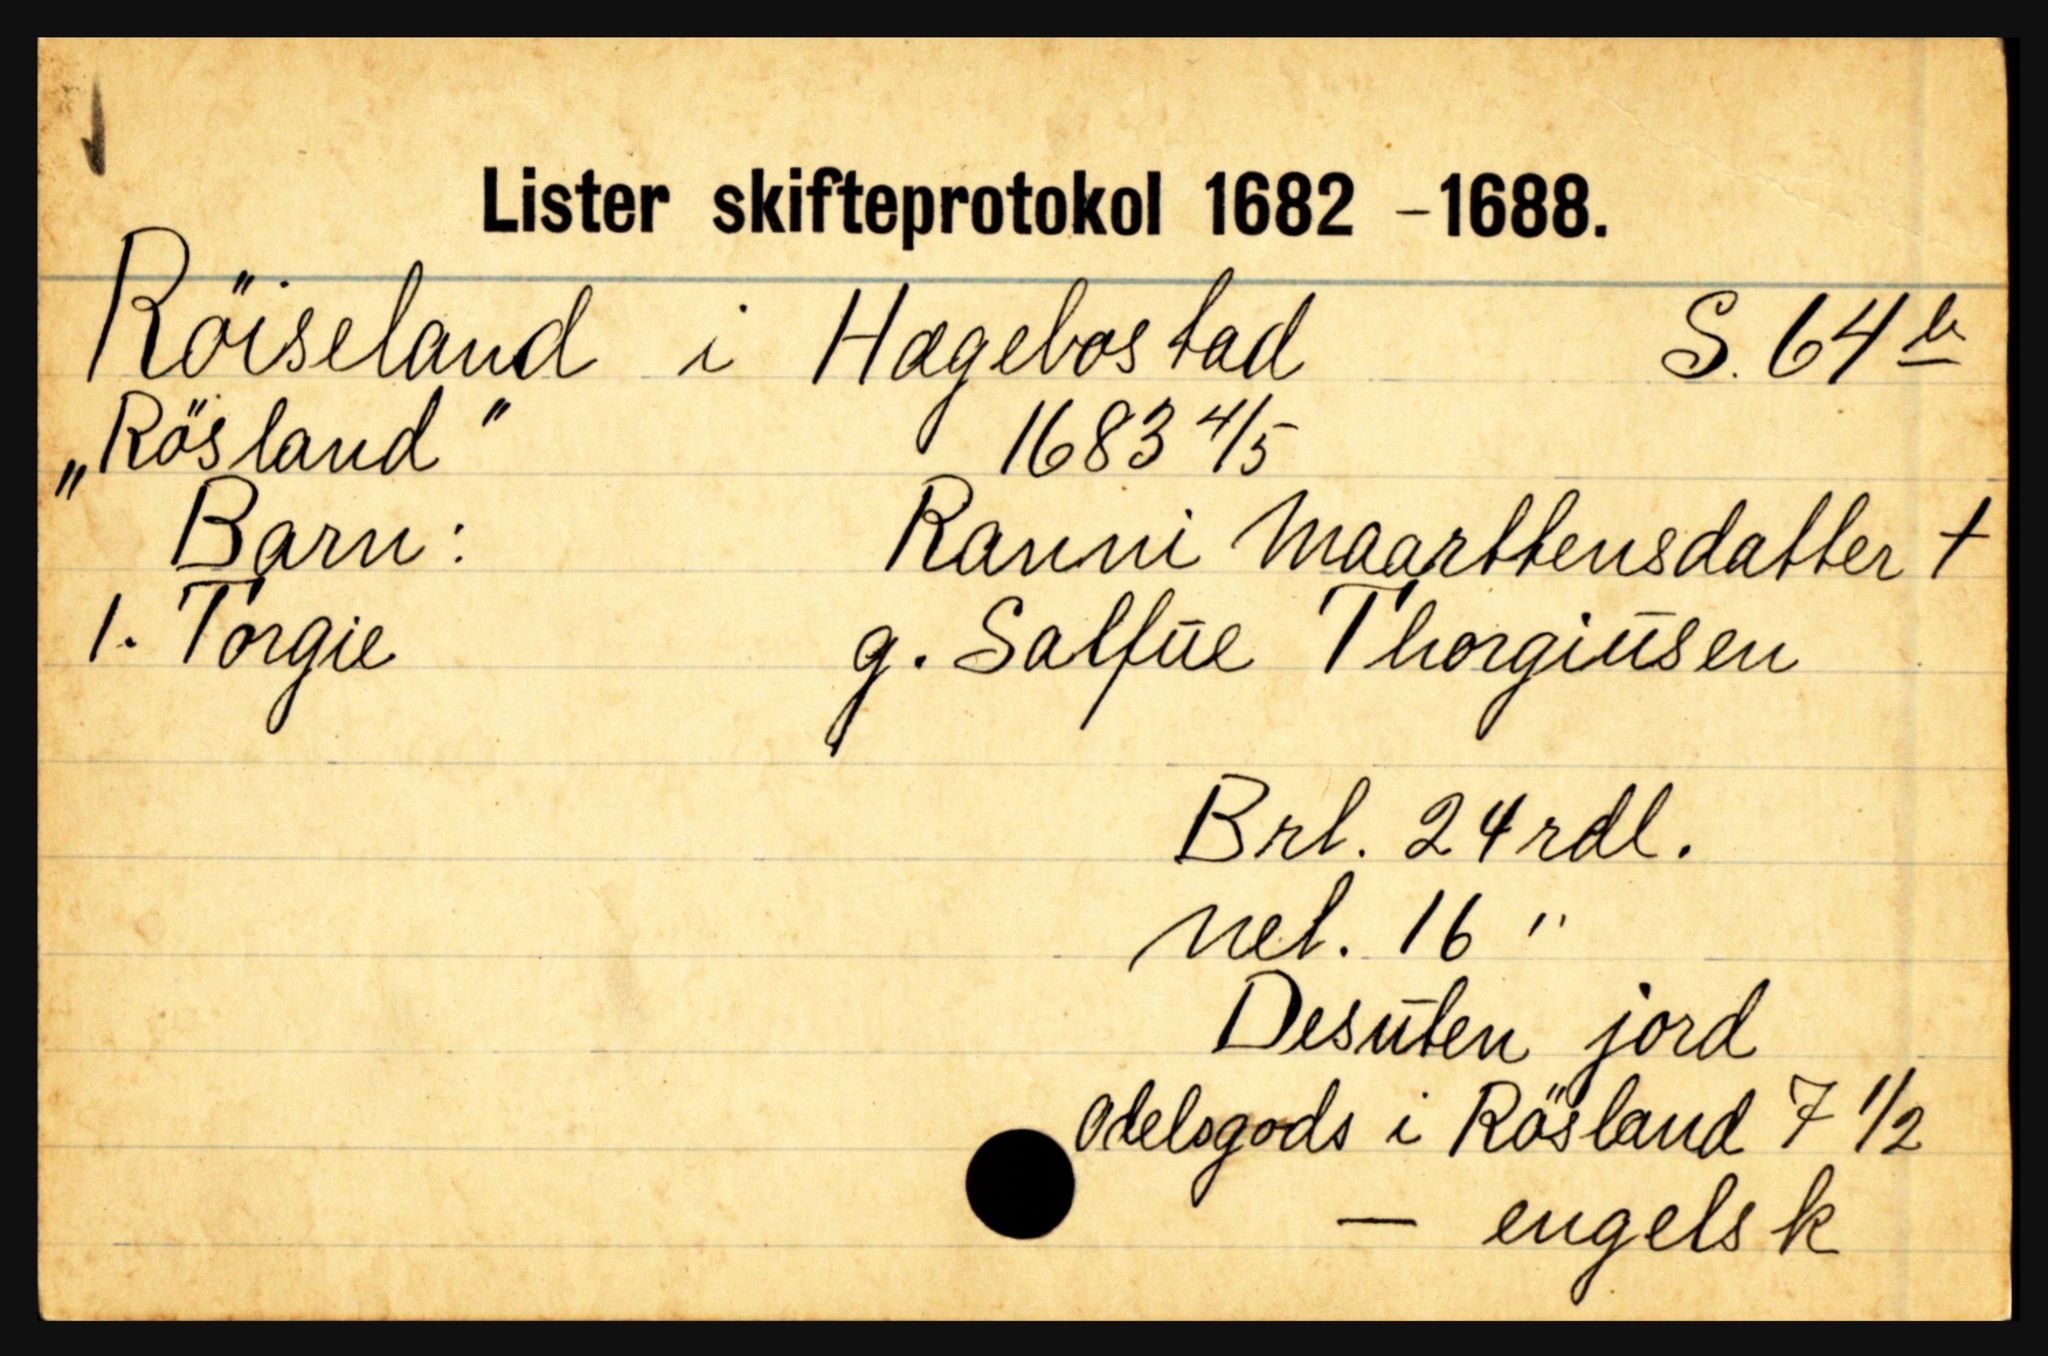 Lister skifteprotokol 1682 - 1688.
Röiseland i Hægebostad S. 64 b
„Rösland" 1683 4/5
Barn: Ranni Maarttensdatter +
1. Torgie g. Salfue Thorgiusen
Brl. 24 rdl.
Nel. 16 "
Desuten jord
Odelsgods i Rösland 7 1/2
— engelsk